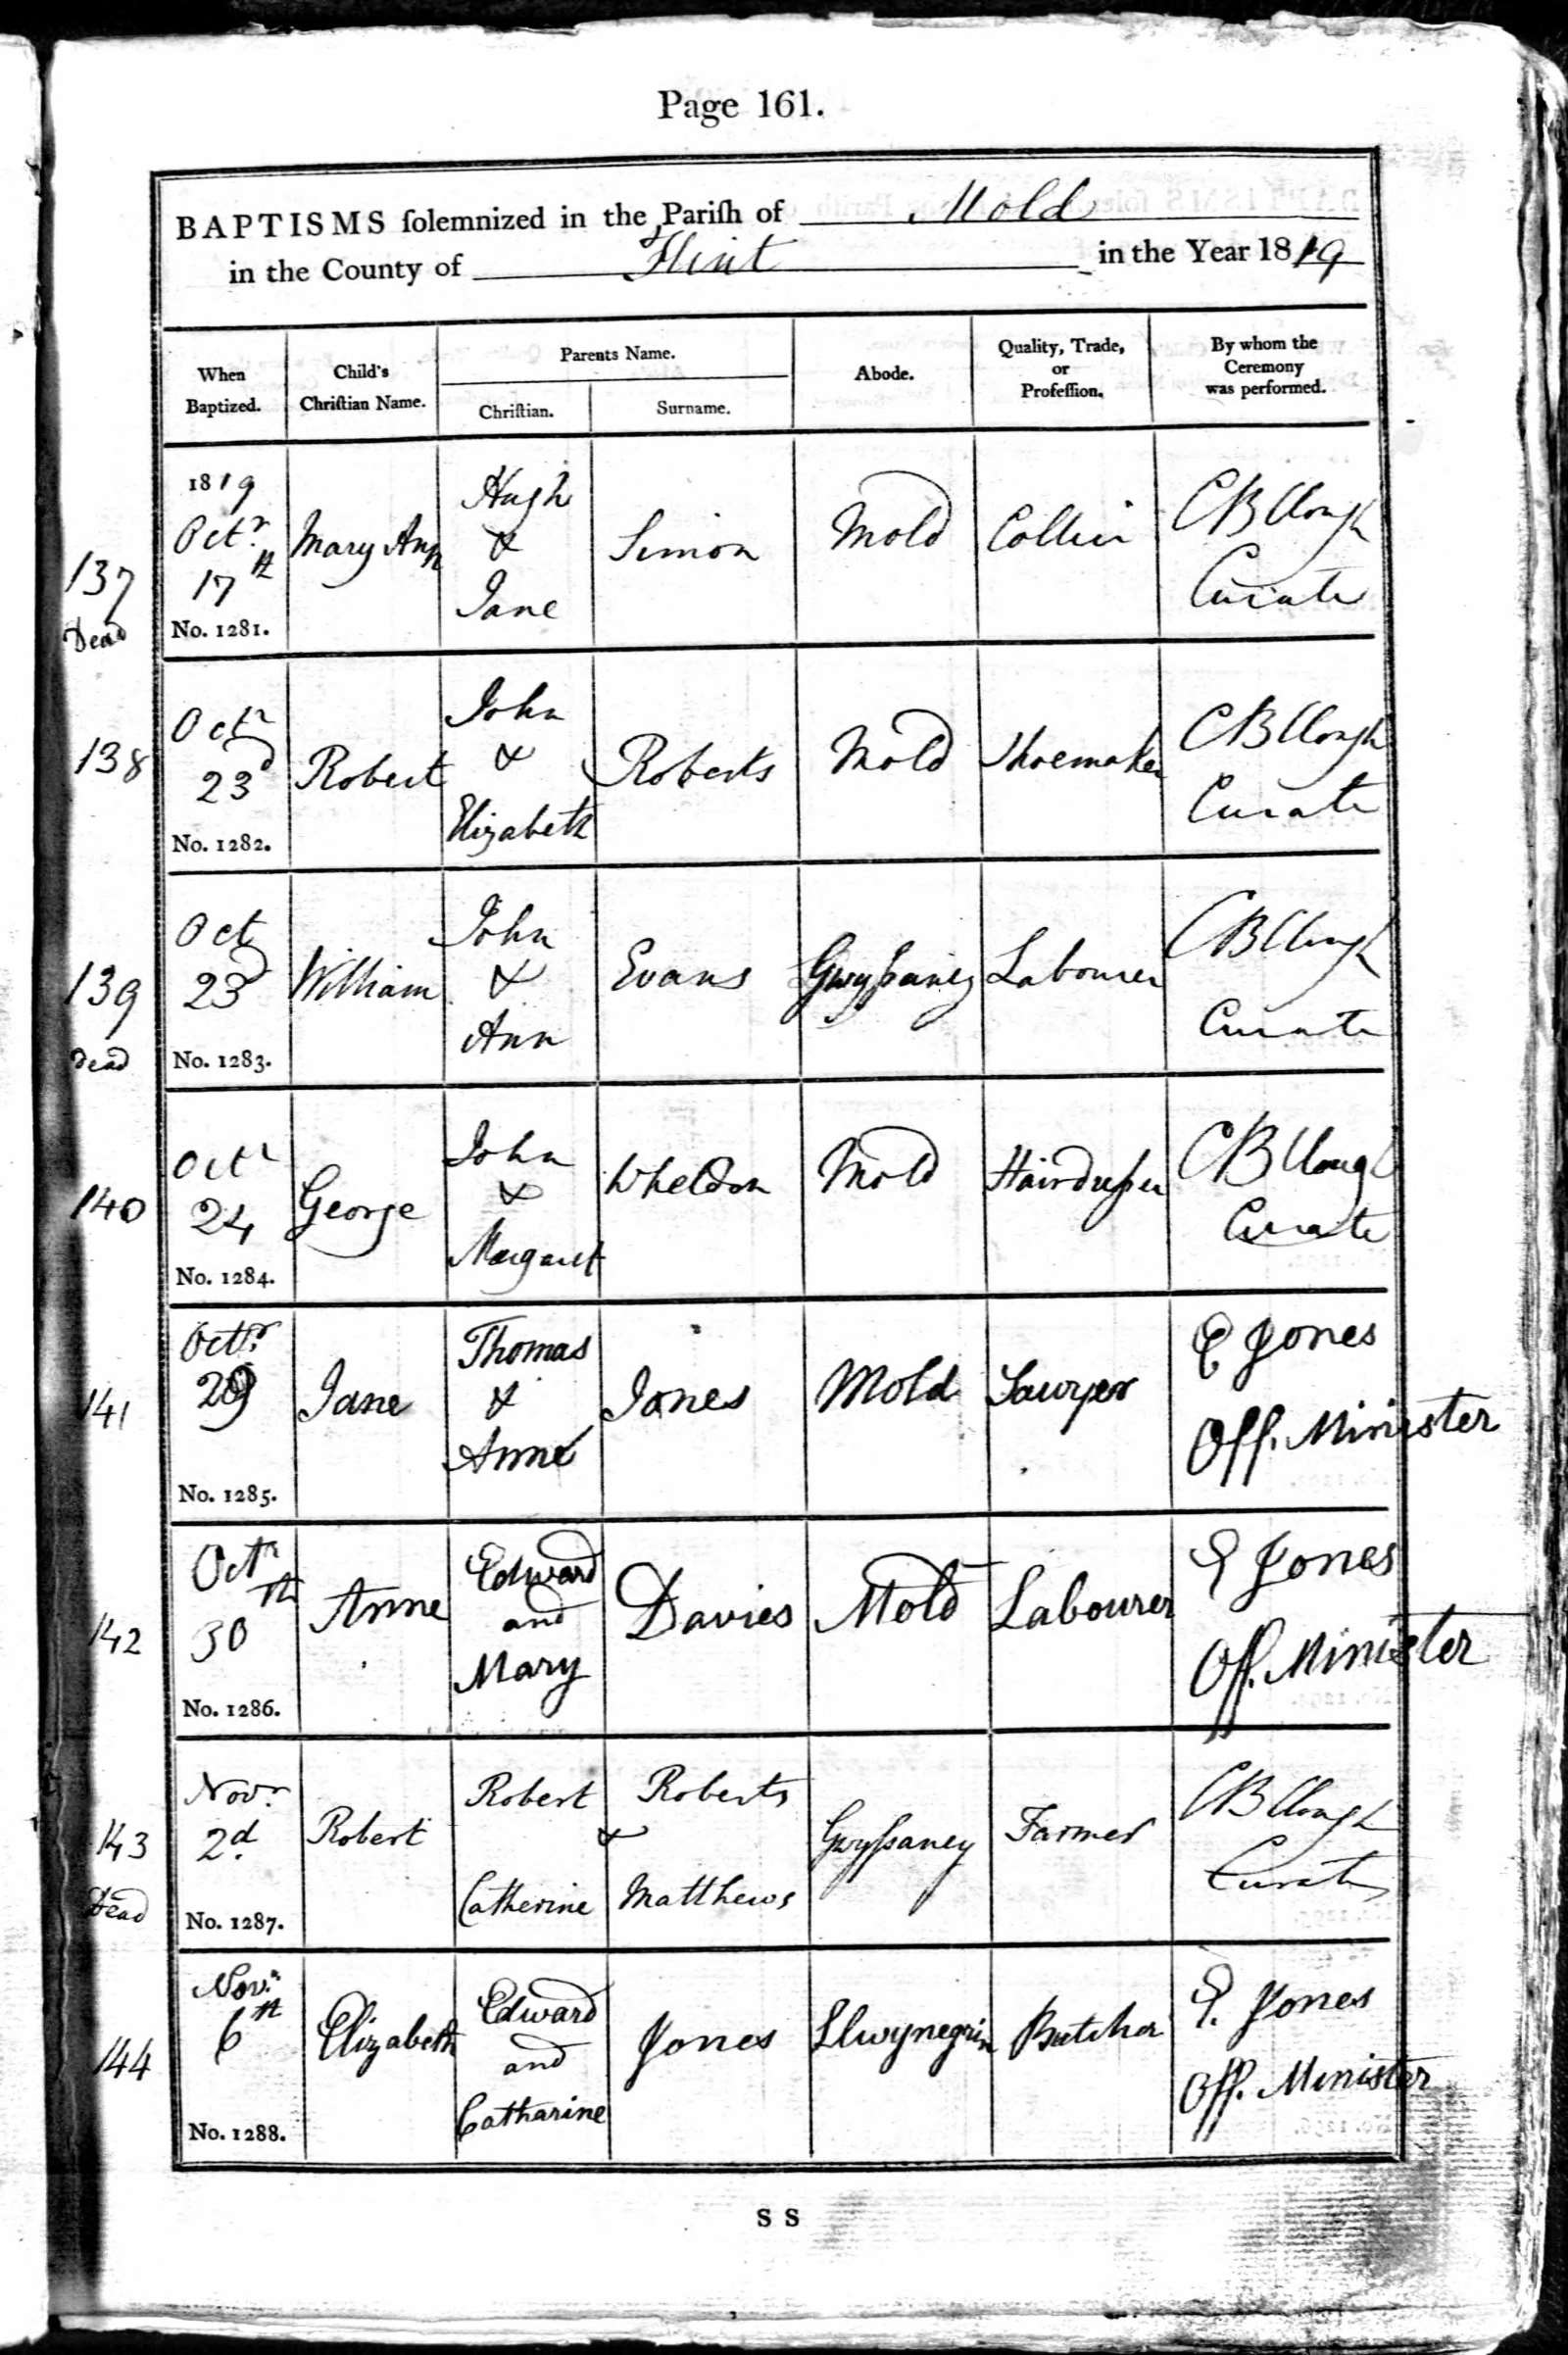 Page 161.
BAPTISMS ſolemnized in the Pariſh of Mold
in the County of Flint in the Year 1819
When Baptized. Child's Chriſtian Name. Parents Name. Abode. Quality, Trade, or Profeſſion. By whom the Ceremony was performed.
Chriſtian. Surname.
1819
Octr
17th
No. 1281.
137
Dead
Mary Ann
Hugh
&
Jane
Simon
Mold
Collier
CB Clough
Curate
Octr
23d
No. 1282.
138
Robert
John
&
Elizabeth
Roberts
Mold
Shoemaker
CB Clough
Curate
Oct
23d
No. 1283.
139
dead
William
John
&
Ann
Evans
Gwyſsaney
Labourer
CB Clough
Curate
Octr
24
No. 1284.
140
George
John
&
Margaret
Wheldon
Mold
Hairdreſser
CB Clough
Curate
Octr.
29
No. 1285.
141
Jane
Thomas
&
Anne
Jones
Mold
Sawyer
E Jones
Off. Minister
Octr
30th
No. 1286.
142
Anne
Edward
and
Mary
Davies
Mold
Labourer
E Jones
Off. Minister
Novr.
2d.
No. 1287.
143
Dead
Robert
Robert Roberts
&
Catherine Matthews
Gwyſsaney
Farmer
CB Clough
Curate
Novr.
6th
No. 1288.
144
Elizabeth
Edward
and
Catharine
Jones
Llwynegrin
Butcher
E. Jones
Off. Minister
S S